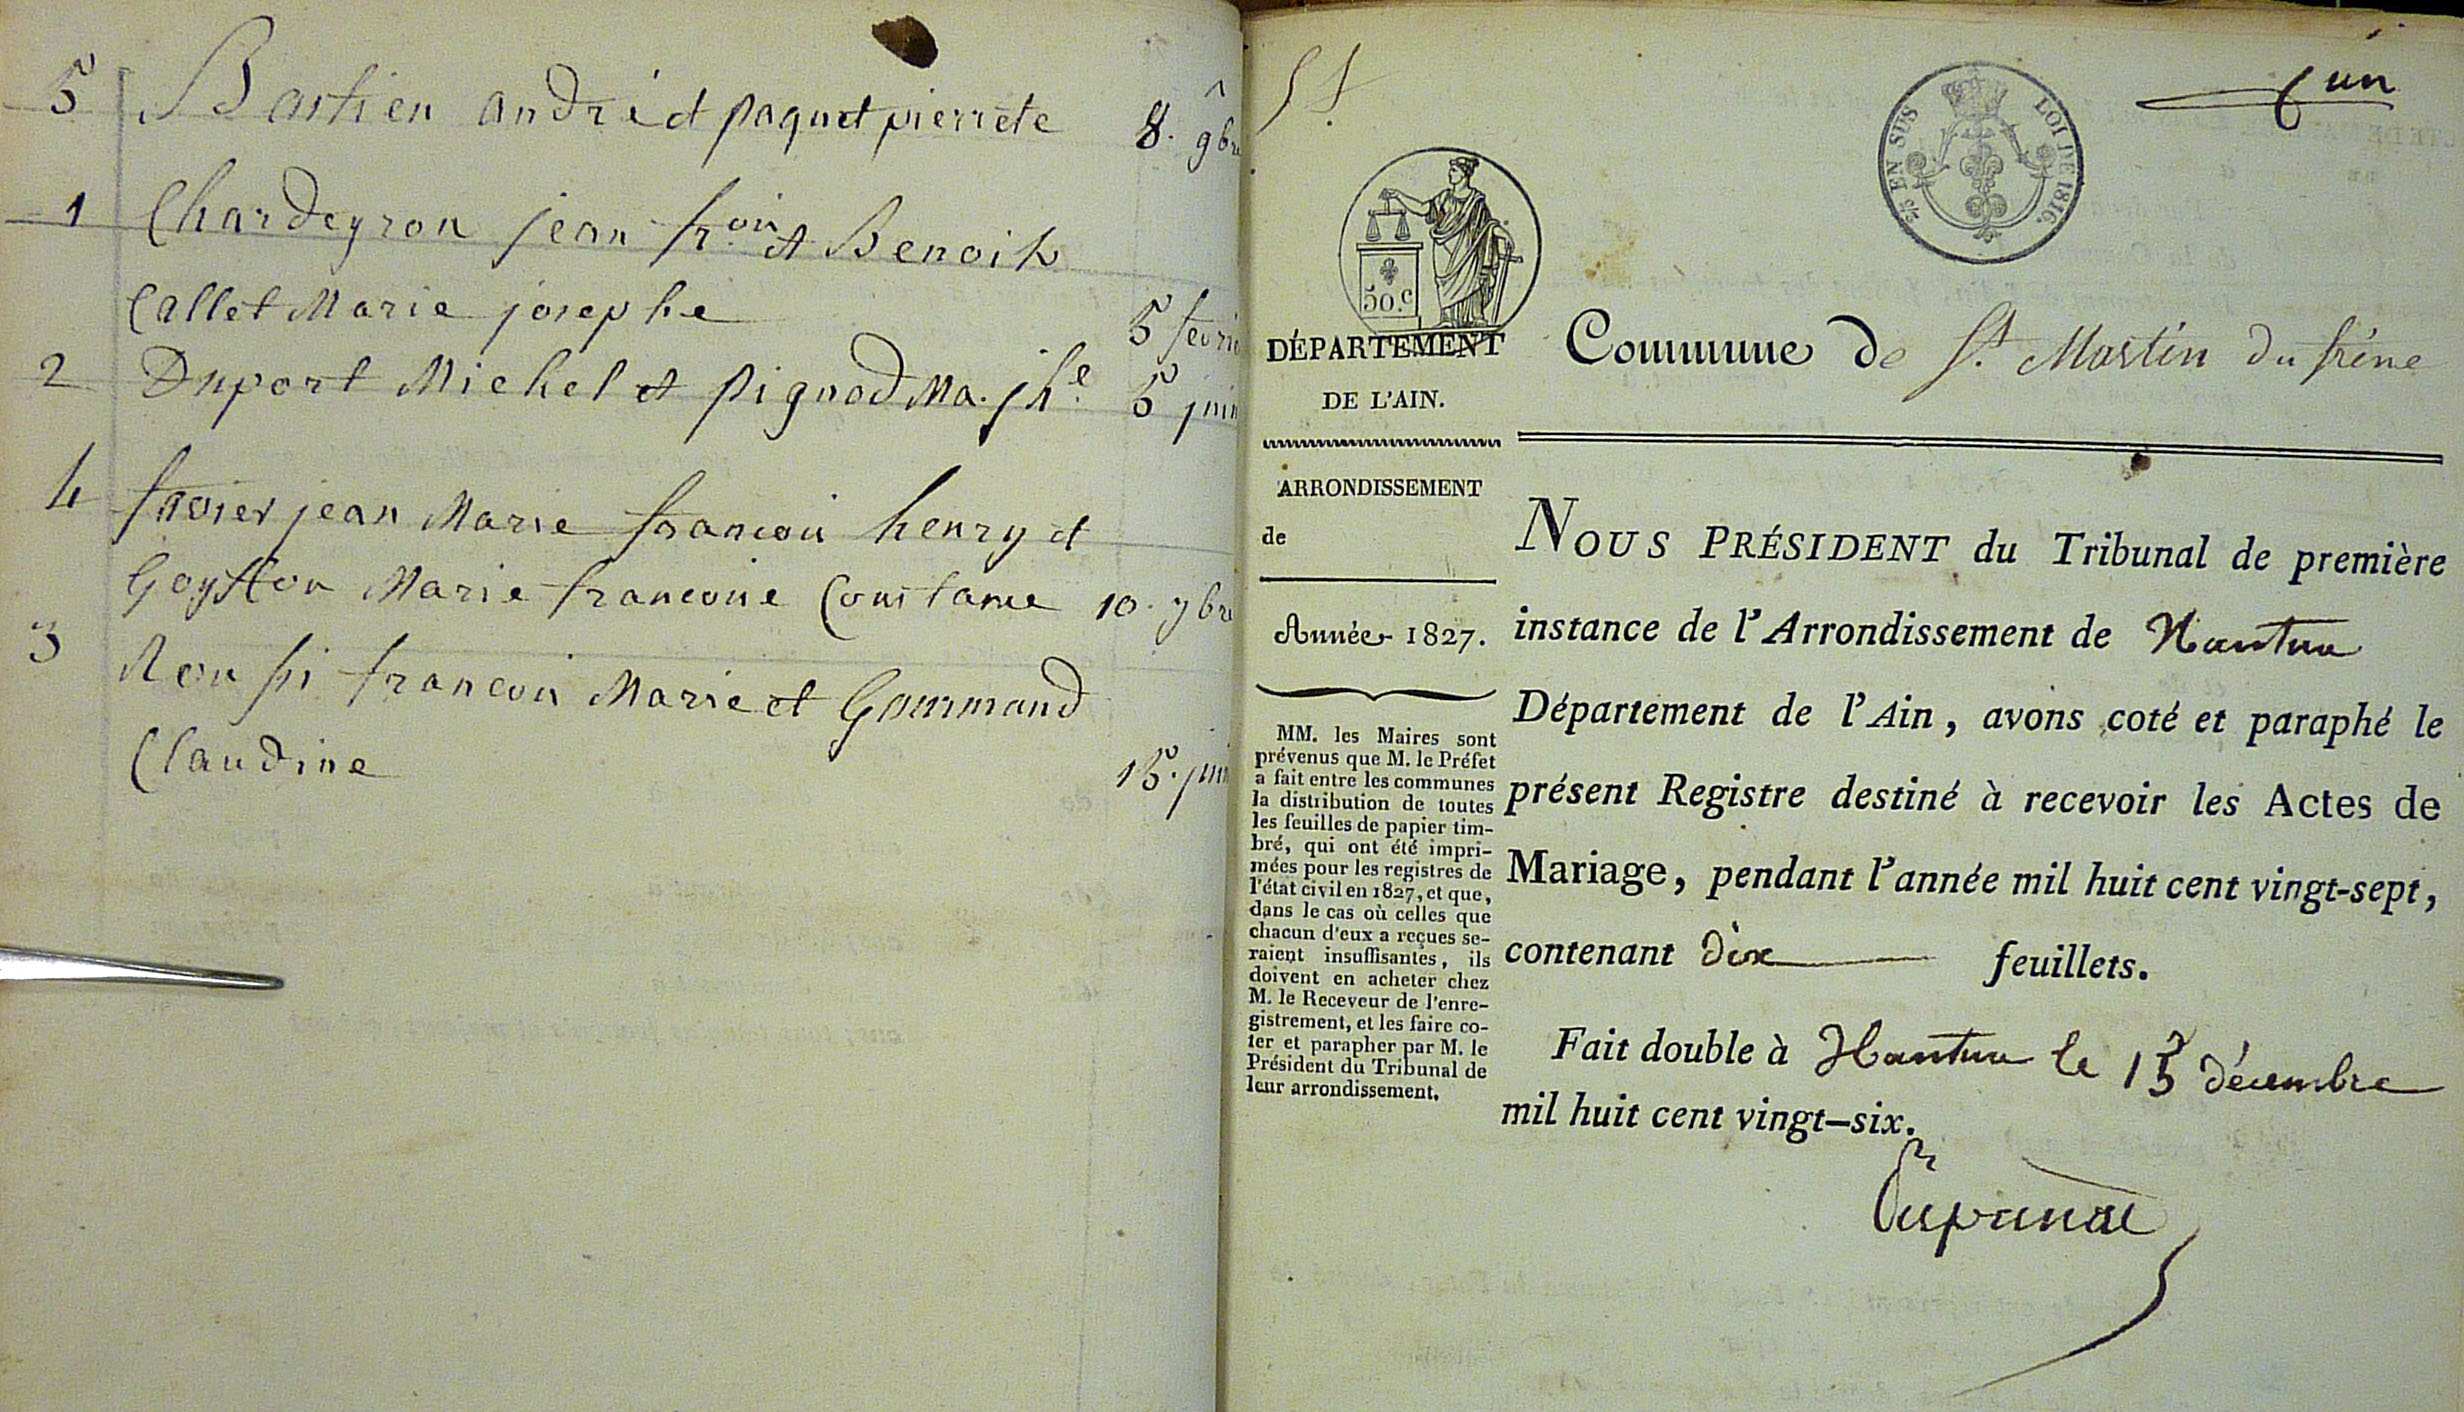 5 Bastien andré et paquet pierrete 8. 9bre
1 Chardeyron jean frois et Benoit
Callet Marie josephe 5 fevri
2 Duport Michel et pignod Ma. jhe 5 juin
4 favier jean Marie francois henry et
Goyffon Marie francoise Constance 10. 7bre
3 Roussi francois Marie et Gourmand
Claudine 15. juin
un
EN SUS
LOI DE 1816.
50.c
DÉPARTEMENT
DE L'AIN.
Commune de St. Martin du frêne
ARRONDISSEMENT
de
Année 1827.
MM. les Maires sont
prévenus que M. le Préfet
a fait entre les communes
la distribution de toutes
les feuilles de papier tim-
bré, qui ont été impri-
mées pour les registres de
l'état civil en 1827, et que,
dans le cas où celles que
chacun d'eux a reçues se-
raient insuffisantes, ils
doivent en acheter chez
M. le Receveur de l'enre-
gistrement, et les faire co-
ter et parapher par M. le
Président du Tribunal de
leur arrondissement.
NOUS PRÉSIDENT du Tribunal de première
instance de l'Arrondissement de Nantua
Département de l'Ain, avons coté et paraphé le
présent Registre destiné à recevoir les Actes de
Mariage, pendant l'année mil huit cent vingt-sept,
contenant dix feuillets.
Fait double à Nantua le 15 décembre
mil huit cent vingt-six.